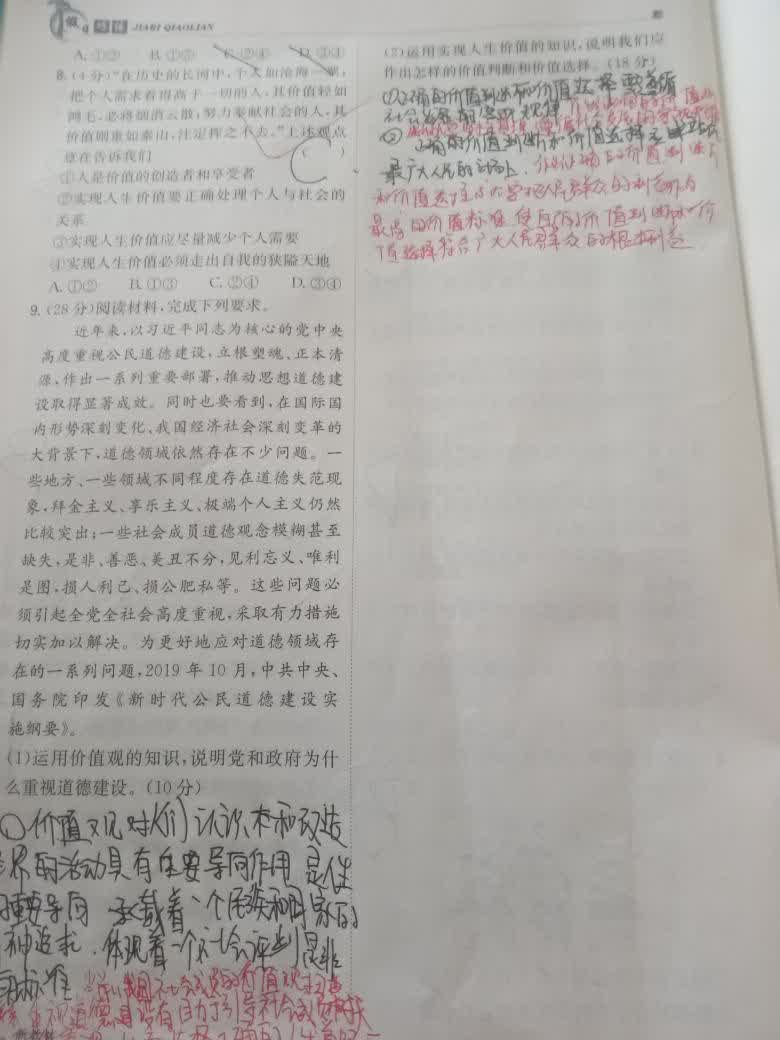 JIARI QIAOLIAN
A. ①② B. ①③ C. ②④ D. ③④
8. (4分)“在历史的长河中,个人如沧海一粟,
把个人需求看得高于一切的人,其价值轻如
鸿毛,必将烟消云散;努力奉献社会的人,其
价值则重如泰山,注定挥之不去。”上述观点
意在告诉我们 ( )
①人是价值的创造者和享受者
②实现人生价值要正确处理个人与社会的
关系
③实现人生价值应尽量减少个人需要
④实现人生价值必须走出自我的狭隘天地
A. ①② B. ①③ C. ②④ D. ③④
9. (28分)阅读材料,完成下列要求。
近年来,以习近平同志为核心的党中央
高度重视公民道德建设,立根塑魂、正本清
源,作出一系列重要部署,推动思想道德建
设取得显著成效。同时也要看到,在国际国
内形势深刻变化、我国经济社会深刻变革的
大背景下,道德领域依然存在不少问题。一
些地方、一些领域不同程度存在道德失范现
象,拜金主义、享乐主义、极端个人主义仍然
比较突出;一些社会成员道德观念模糊甚至
缺失,是非、善恶、美丑不分,见利忘义、唯利
是图,损人利己、损公肥私等。这些问题必
须引起全党全社会高度重视,采取有力措施
切实加以解决。为更好地应对道德领域存
在的一系列问题,2019年10月,中共中央、
国务院印发《新时代公民道德建设实
施纲要》。
(1)运用价值观的知识,说明党和政府为什
么重视道德建设。(10分)
①价值观对人们认识世和改造
界的活动具有重要导向作用 是人生
重要导向 承载着一个民族和国家的
神追求,体现着一个社会评判是非
标准
(2)运用实现人生价值的知识,说明我们应
作出怎样的价值判断和价值选择。(18分)
①正确的价值判断和价值选择要遵循
社会发展的客观规律
② 正确的价值判断和价值选择
最广大人民的立场上,
和价值选择 人民群众的利益为
最高的价值标准 使自己的价值判断和价
值选择符合广大人民群众的根本利益